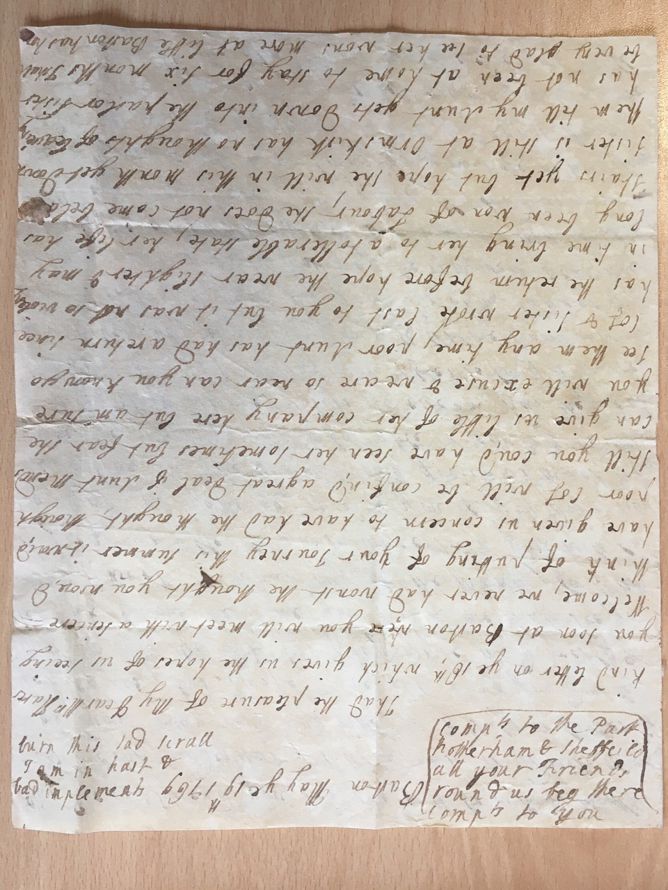 Barton May ye 19th 1769
I had the pleasure of My Dear
kind letter on ye 16th which gives us the hopes of seeing
you soon at Barton you will meet with a sencere
Welcome, we never had wonst the thought you wood
think of putting of your Journey this summer it
have given us concern to have had the thought, though
poor Cos will be confin'd a great deal if Aunt mends
still you cou'd have seen her sometimes but fear she
can give us little of her company here but am sure
you will excuse & we are so near can you know go
see them any time, poor Aunt has had a return since
Cos & sister wrote last to you but it was not so
has the return before hope the wear slighter & may
in time bring her to a tollerable state, her life has
long been won of Labour, she does not come
Stairs yet but hope she will in this month get Down
sister is still at Ormskirk has no thoughts of leaving
them till my Aunt gets Down into the parlor sister
has not been at home to stay for six months I shall
be very glad to see her wons more at little Barton has
compts to the Parr
Rotherham & Sheffeild
all your Friends
round us beg there
compts to you
burn this sad scrall
I am in hast &
bad implements